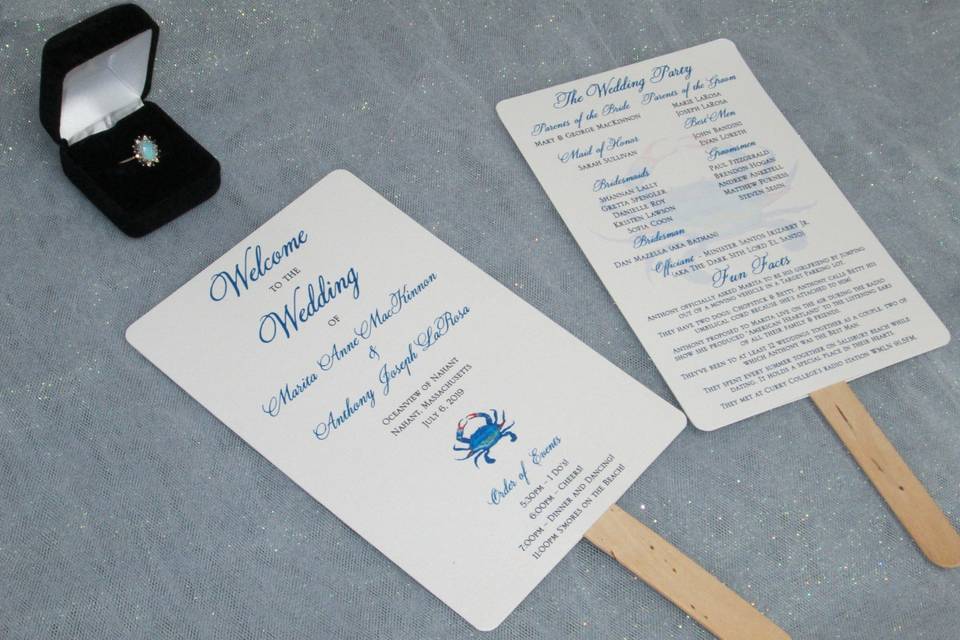 Welcome
to the
Wedding
of
Marita Anne MacKinnon
&
Anthony Joseph LaRosa
Oceanview of Nahant
Nahant, Massachusetts
July 6, 2019
Order of Events
5:30pm – I Do's!
6:00pm – Cheers!
7:00pm – Dinner and Dancing!
11:00pm S'mores on the Beach!
The Wedding Party
Parents of the Bride
Mary & George MacKinnon
Maid of Honor
Sarah Sullivan
Bridesmaids
Shannan Lally
Gretta Spengler
Danielle Roy
Kristen Lawson
Sofia Coon
Bridesman
Dan Mazella (aka Batman)
Parents of the Groom
Marie LaRosa
Joseph LaRosa
Best Men
John Bandini
Evan Loreth
Groomsmen
Paul Fitzgerald
Brendon Hogan
Andrew Anketell
Matthew Furness
Steven Sesin
Officiant - Minister Santos Irizarry Jr.
(aka The Dark Sith Lord El Santo)
Fun Facts
Anthony officially asked Marita to be his girlfriend by jumping
out of a moving vehicle in a Target Parking Lot.
They have two dogs, Chopstick & Betty. Anthony calls Betty his
umbilical cord because she's attached to him!
Anthony proposed to Marita live on the air during the radio
show she produced "American Heartland" to the listening ears
of all their family & friends.
They've been to at least 12 weddings together as a couple, two of
which Anthony was the Best Man.
They spent every summer together on Salisbury Beach while
dating. It holds a special place in their hearts.
They met at Curry College's radio station WMLN-91.5FM.